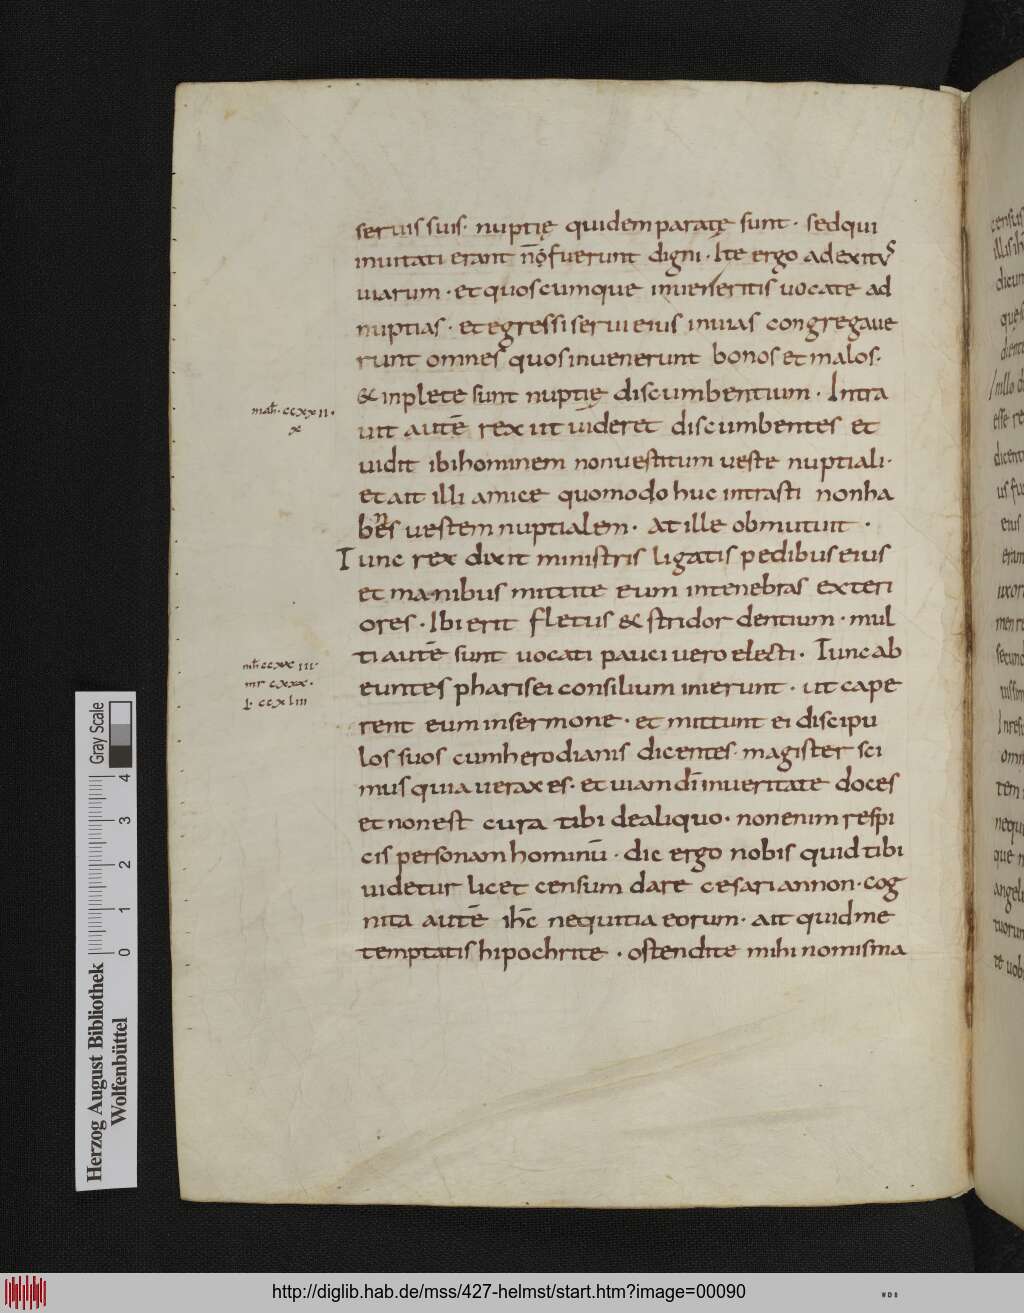 seruis suis· nuptię quidem paratę sunt· sed qui
inuitati erant nō fuerunt digni· Ite ergo ad exitus
uiarum· et quoscumque inueneritis uocate ad
nuptias· et egressi serui eius in uias congregaue
runt omnes quos inuenerunt bonos et malos·
& inplete sunt nuptię discumbentium· Intra
math· ccxxii·
x
uit autē rex ut uideret discumbentes et
uidit ibi hominem non uestitum ueste nuptiali·
et ait illi amice quomodo huc intrasti non ha
bens uestem nuptialem· at ille obmutuit·
Tunc rex dixit ministris ligatis pedibus eius
et manibus mittite eum in tenebras exteri
ores· Ibi erit fletus & stridor dentium· mul
ti autē sunt uocati pauci uero electi· Tunc ab
mt ccxxiii·
mr cxxx·
l· ccxliii
euntes pharisei consilium inierunt· ut cape
rent eum in sermone· et mittunt ei discipu
los suos cum herodianis dicentes· magister sci
mus quia uerax es· et uiam dī in ueritate doces
et non est cura tibi de aliquo· non enim respi
cis personam hominū· dic ergo nobis quid tibi
uidetur licet censum dare cesari annon· cog
nita autē ihc̄ nequitia eorum· ait quid me
temptatis hipochrite· ostendite mihi nomisma
Gray Scale
0 1 2 3 4
Herzog August Bibliothek
Wolfenbüttel
http://diglib.hab.de/mss/427-helmst/start.htm?image=00090